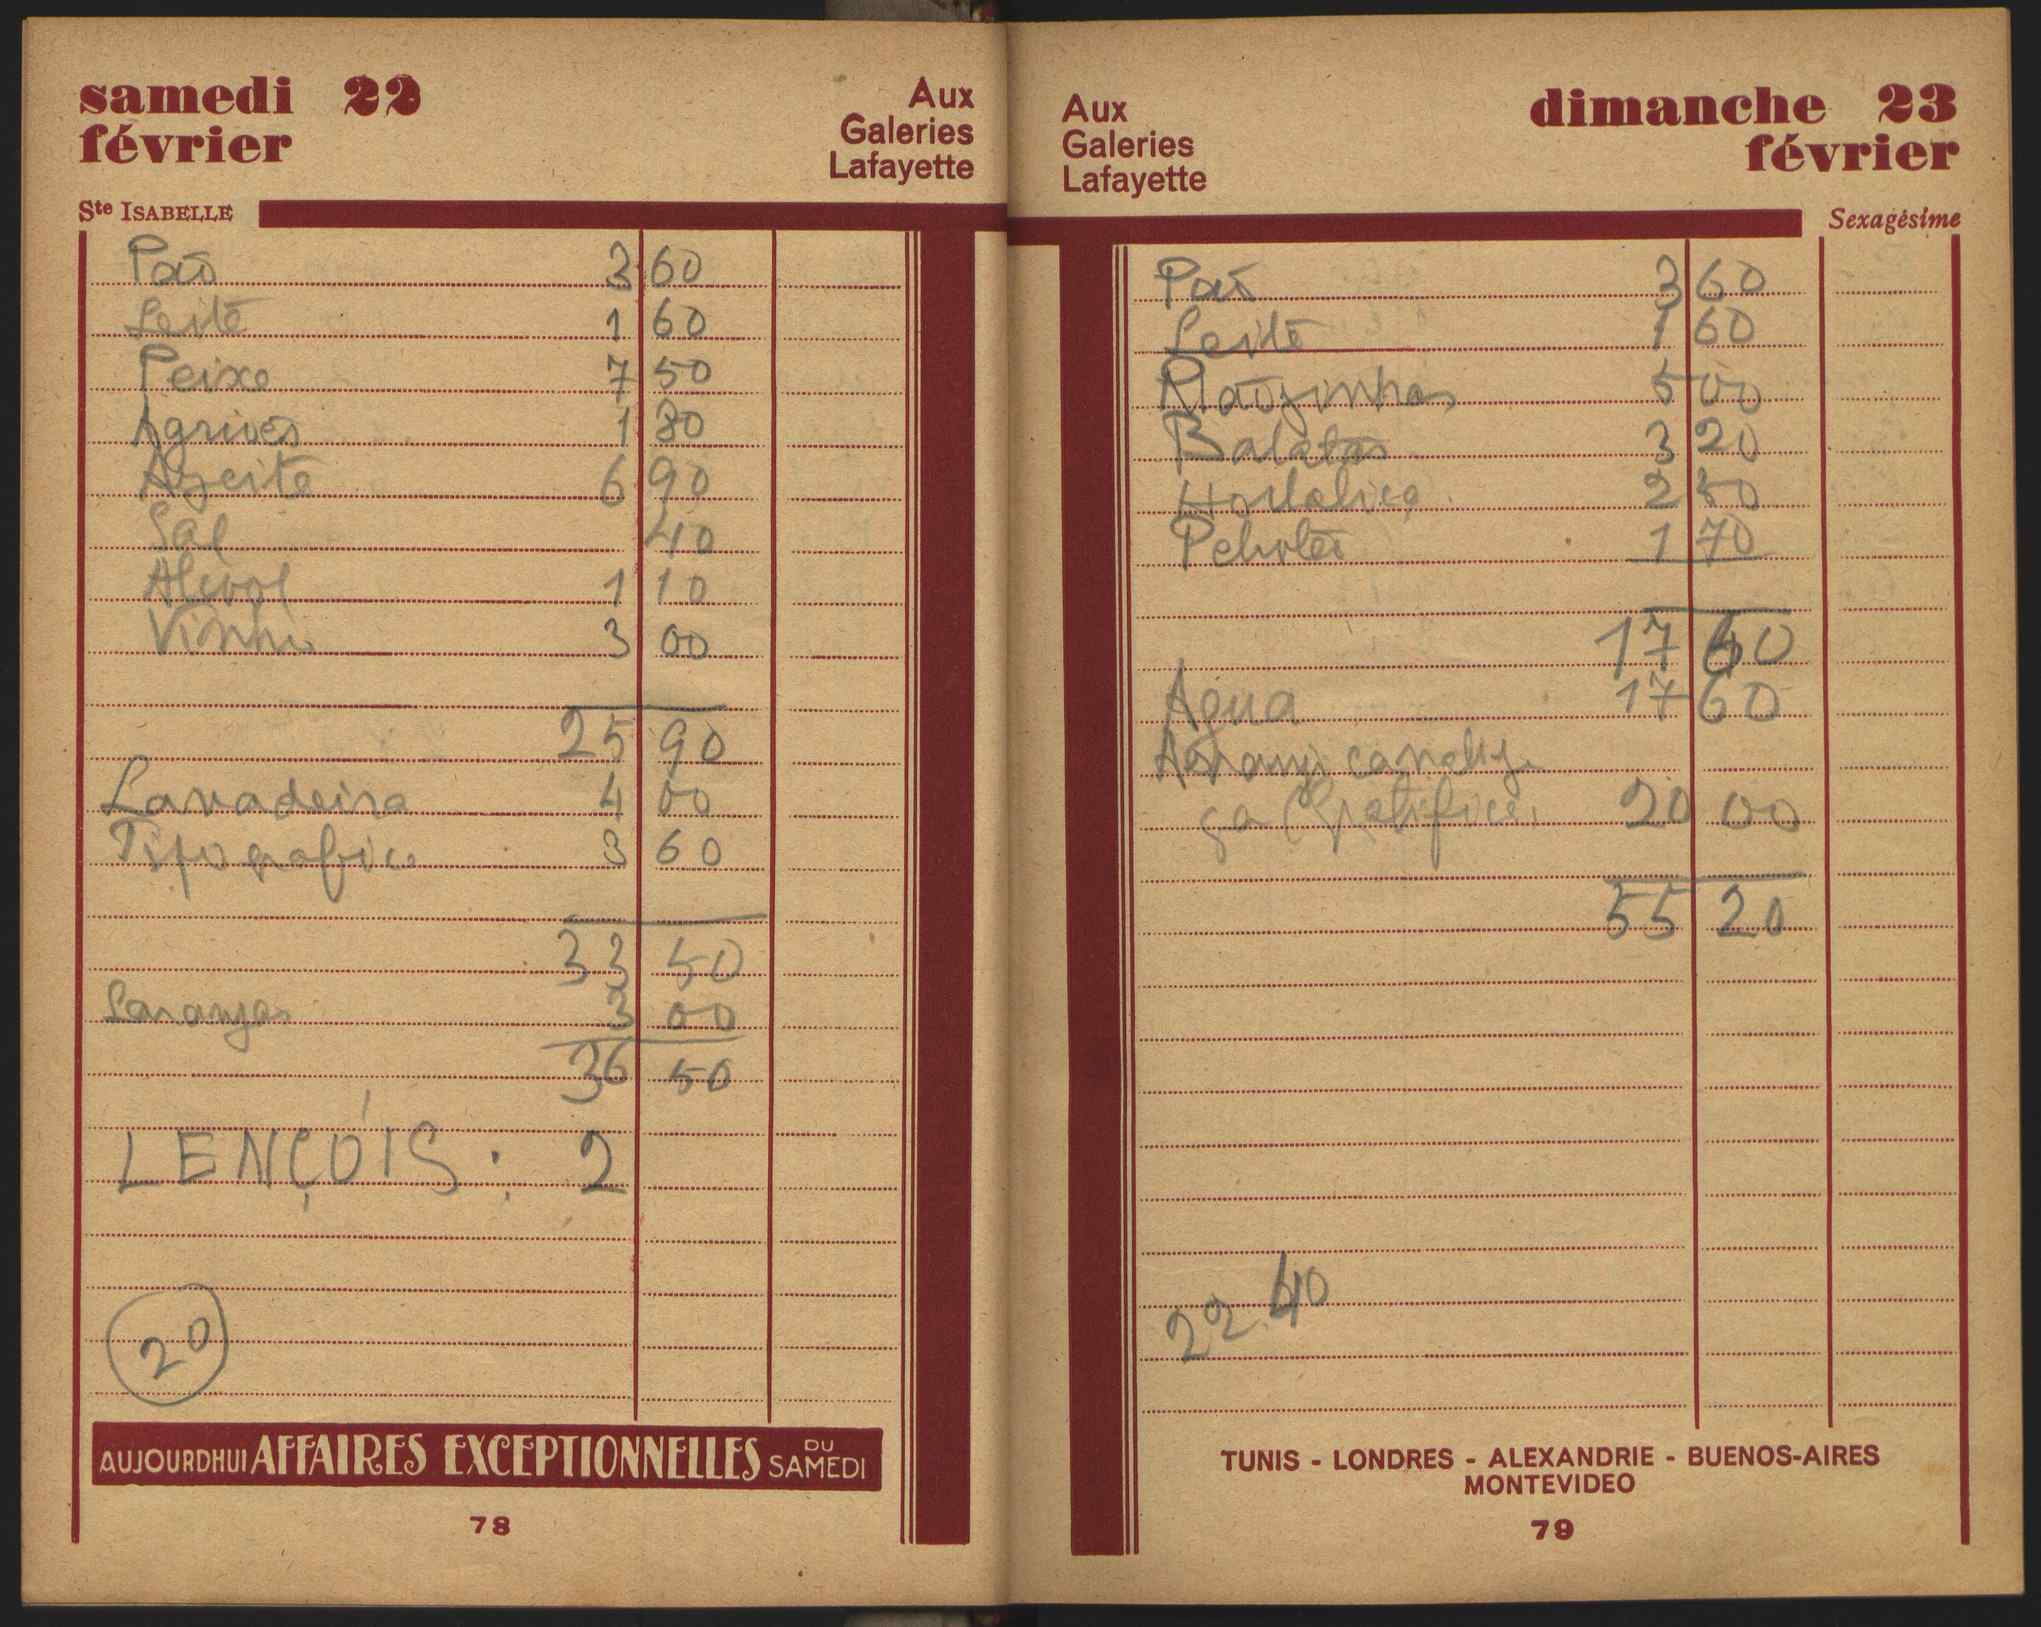 samedi 22
février
Aux
Galeries
Lafayette
Ste ISABELLE
Pão 3 60
Leite 1 60
Peixe 7 50
Agriões 1 80
Azeite 6 90
Sal 40
Alcool 1 10
Vinho 3 00
25 90
Lavadeira 4 00
Tipografica 3 60
33 50
Laranjas 3 00
36 50
LENÇÓIS: 2
20
AUJOURDHUI AFFAIRES EXCEPTIONNELLES DU SAMEDI
78
Aux
Galeries
Lafayette
dimanche 23
février
Sexagésime
Pão 3 60
Leite 1 60
Mãozinhas 5 00
Batatas 3 20
Hortaliça 2 50
1 70
17 60
Agua 17 60
Arranjo canaliz.
20 00
55 20
22.40
TUNIS - LONDRES - ALEXANDRIE - BUENOS-AIRES
MONTEVIDEO
79